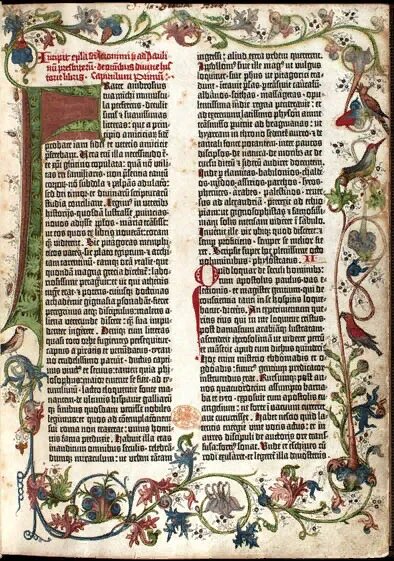 Incipit epla sci iheronimi ad pauli-
nū presbiterū de omībus diuine his-
torie libris. Capitulum primum.
Frater ambrosius
tua michi munuscu-
la perferens, detulit
simul et suauissimas
litteras: que a prin-
cipio amiciciarū fidē
probate iam fidei et veteris amicicie
preferebant. Vera enī illa necessitudo ē
et xpi glutino copulata: quā nō utili-
tas rei familiaris, non pñtia tantum
corporū, nō subdola et palpās adulatio
sed dei timor, et diuinarū scripturarū
studia conciliant. Legimus in veteribs
historijs, quosdā lustrasse prouincias
nouos adijsse pplos, maria trāsisse:
ut eos quos ex libris nouerāt, coram
viderent. Sic pitagoras memphi-
ticos vates, sic plato egiptum, et archi-
tam tarentinū, eamq oram italie, que
quondā magna grecia dicebaī: labo-
riosissime peragrauit: ut qui athenis
mgr erat et potens, cuiusq doctrinas
achademie gignasia psonabāt: fieret
peregrinus atq discipulus: malens a-
liena verecunde discere: q̄ sua impu-
denter ingerere. Deniq cum litteras
quasi toto orbe fugientes persequitur
captus a piratis et venūdatus, tyran-
no crudelissimo paruit: ductus capti-
uus vinct⁹ et seruus: tamen quia phi-
losophus: maior emente se fuit. ad ty-
tum liuiū, lacteo eloquentie fonte ma-
nantem, de ultimis hispanie galliarū
q finibus quosdam venisse nobiles
legimus: et quos ad contemplationē
sui roma non traxerat: unius homi-
nis fama perduxit. Habuit illa etas
inauditum omnibus seculis, celebrā-
dumq miraculum: ut urbem tantam
ingressi: aliud extra urbem quererent.
Apolloni⁹ siue ille mag⁹ ut vulgus
loquitur, siue phus ut pitagorici tra-
dunt, intrauit psas, ptrāsiuit caucasū
albanos, scithas, massagetas, opu-
lentissima indie regna penetrauit: et
ad extremum latissimo physon amne
transmisso puenit ad bragmanas: ut
hyarcam in throno sedentē aureo, et de
tantali fonte potantem, inter paucos
discipulos, de natura, de moribus, ac de
cursu dierū et siderū audiret docentem.
Inde p elamitas, babilonios, chalde-
os, medos, assirios, parthos, syros,
phenices, arabes, palestinos, reuer-
sus ad alexandriā, perrexit ad ethio-
piam: ut gignosophistas et famosissi-
mam solis mensam videret ī sabulo.
Inuenit ille vir ubiq quod disceret: et
semp proficiens, semper se melior fie-
ret. Scripsit super hoc plenissime octo
voluminibus, phylostratus. II
Quid loquar de seculi hominibs:
cum apostolus paulus, vas e-
lectionis, et magister gentium, qui de
conscientia tanti in se hospitis loque-
batur dicens. An experimentum que-
ritis eius qui in me loquitur cristus.
post damascum arabiāq lustratam:
ascenderit iherosolimā ut videret petrū
et māserit apud eum diebus quindeci.
Hoc enim misterio ebdomadis et o-
gdoadis, futur⁹ gentium predicator
instruendus erat. Rursumq post an-
nos quatuordecim assumpto barna-
ba et tyto, exposuit cum apostolis eu-
angelium: ne forte ī vacuum curreret
aut cucurrisset. Habet nescio quid la-
tentis energie viue vocis actus: et in
aures discipuli de auctoris ore trans-
fusa: fortius sonat. Vnde et eschines cū
rodi exularet, et legeret illa demostenis